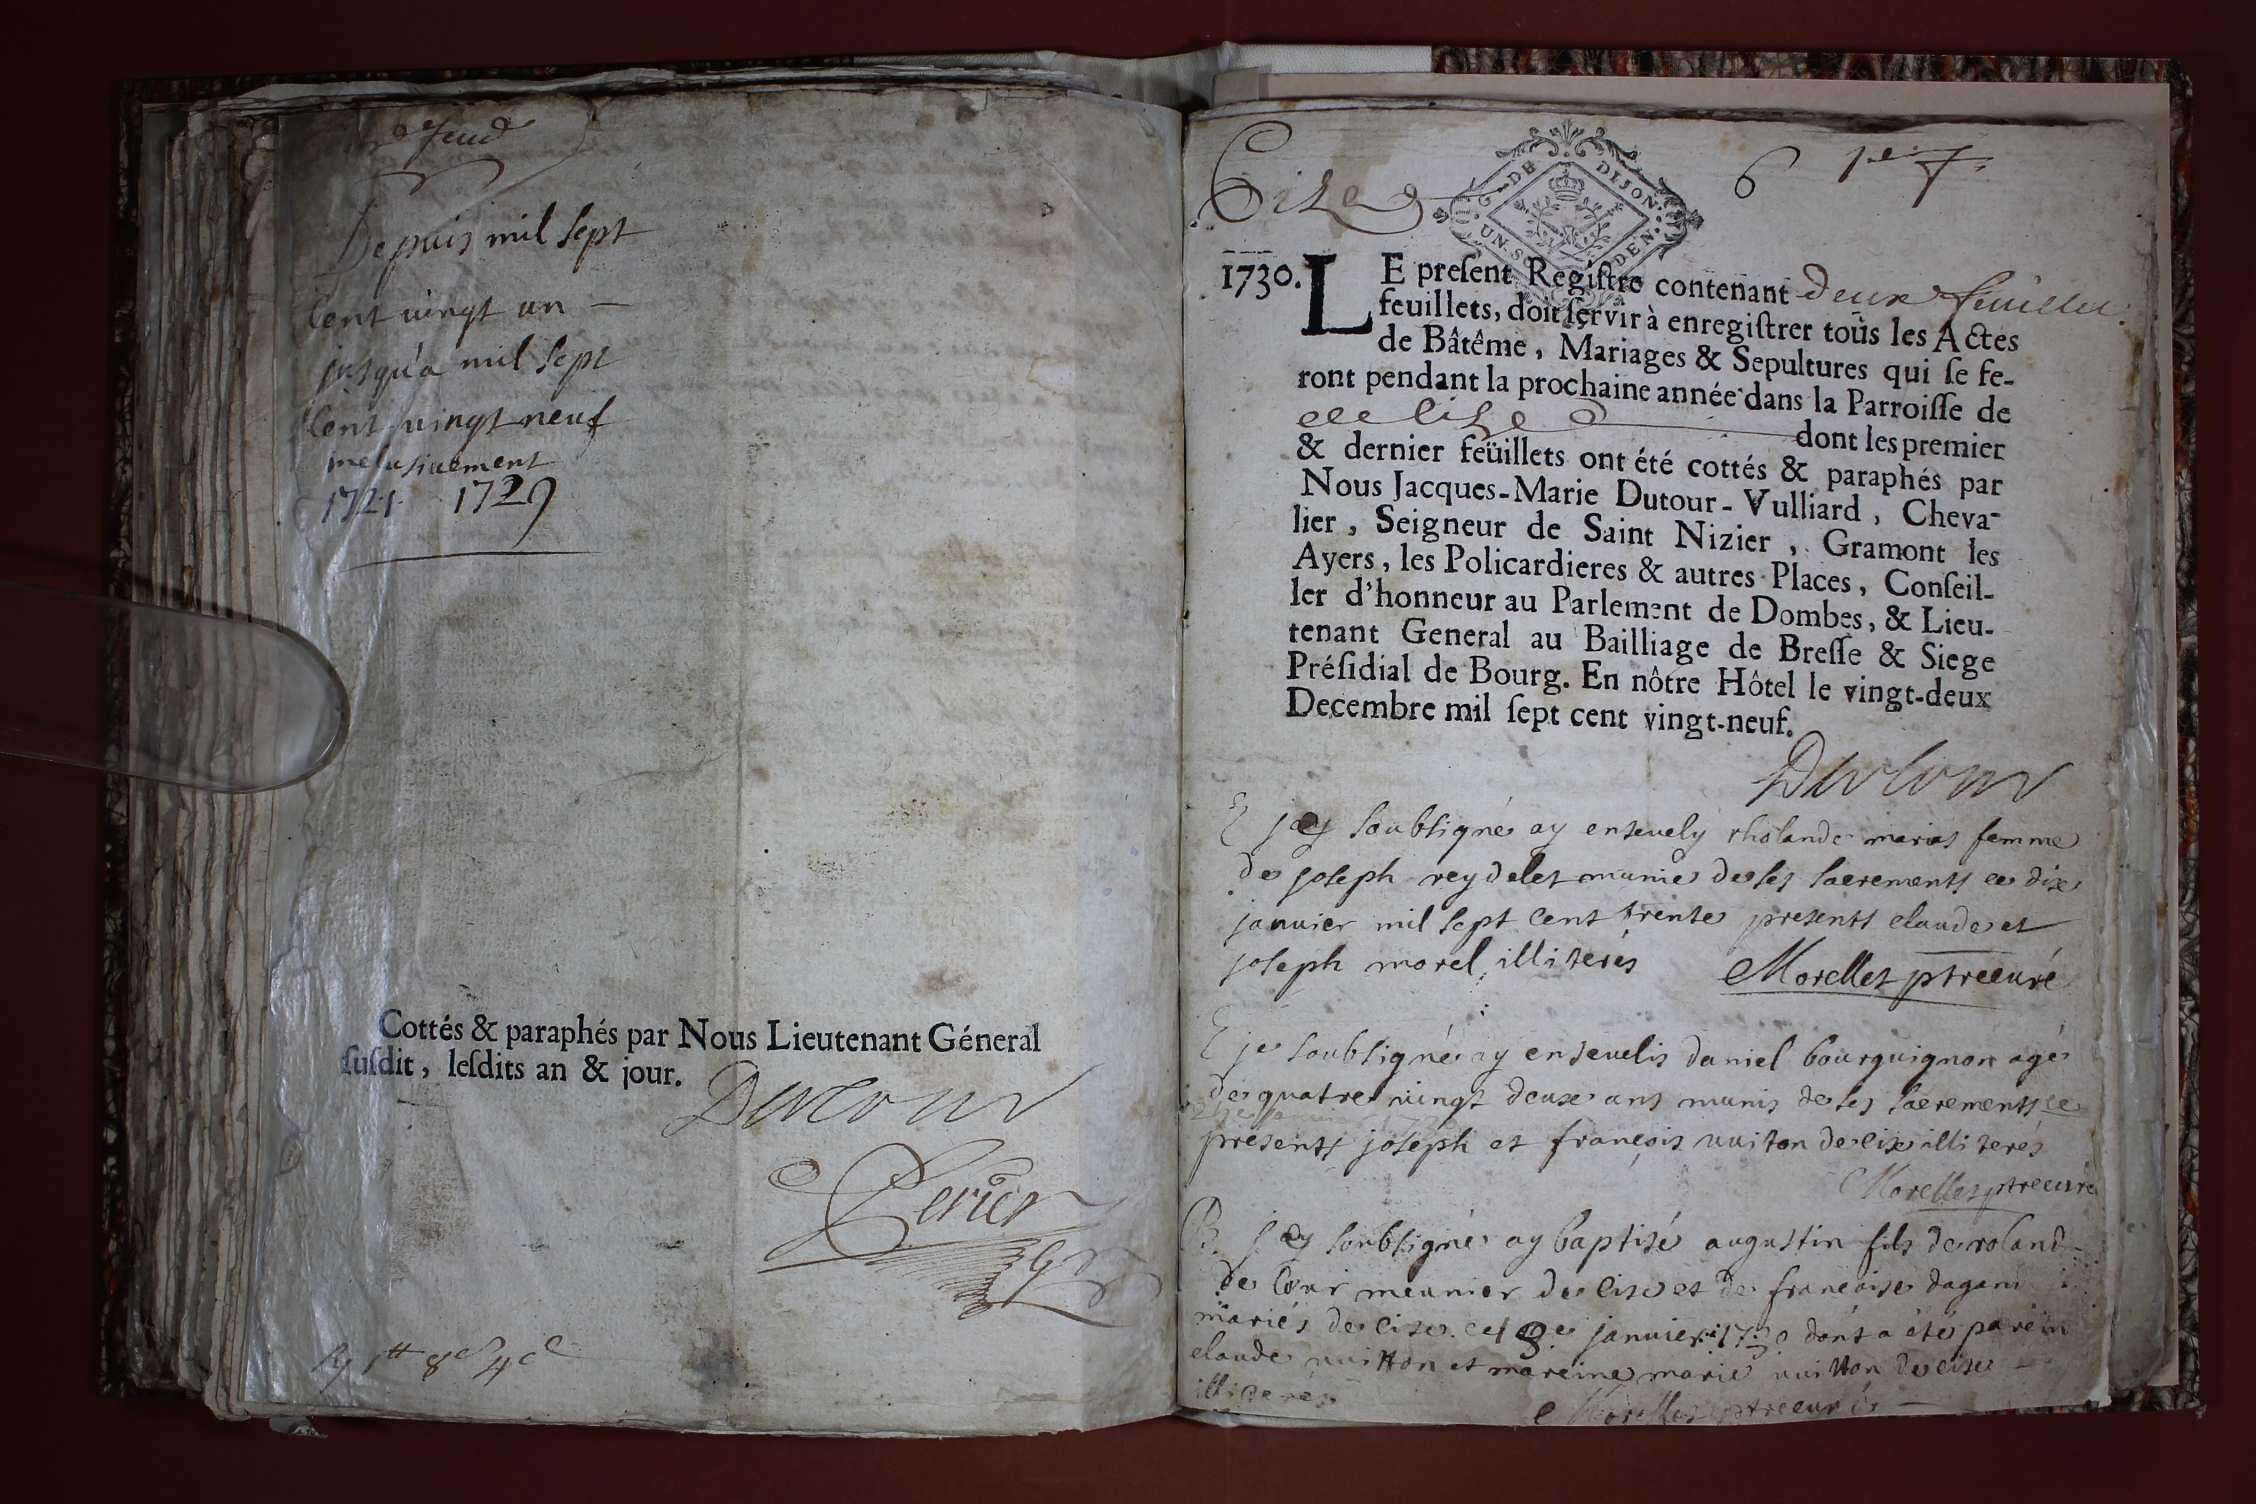 Depuis mil sept
Cent vingt un —
jusqu'a mil sept
Cent vingt neuf
inclusivement
1721. 1729
Cottés & paraphés par Nous Lieutenant Géneral
susdit, lesdits an & jour.
Dutour
Perier
Cize
6
G. DE DIJON.
UN. SO DEN.
1730. LE present Registre contenant deux feuillets
feuillets, doit servir à enregistrer tous les Actes
de Bâtême, Mariages & Sepultures qui se fe-
ront pendant la prochaine année dans la Parroisse de
de Cize dont les premier
& dernier feüillets ont été cottés & paraphés par
Nous Jacques-Marie Dutour-Vulliard, Cheva-
lier, Seigneur de Saint Nizier, Gramont les
Ayers, les Policardieres & autres Places, Conseil-
ler d'honneur au Parlement de Dombes, & Lieu-
tenant General au Bailliage de Bresse & Siege
Présidial de Bourg. En nôtre Hôtel le vingt-deux
Decembre mil sept cent vingt-neuf.
Dutour
E soubsigné ay ensevely rholande marias femme
de joseph reydelet munie de ses sacrements ce dix
janvier mil sept cent trente presents claude et
joseph morel illiterés Morellet ptre curé
E je soubsigné ay ensevelis daniel bourguignon agé
de quatre vingt deux ans munis de ses sacrements ce
presents joseph et françois vuiton de cize illiterés
Morellet ptre curé
B. soubsigné ay baptisé augustin fils de roland
de Cour meunier de cize et de francoise
mariés de cize janvier 1730 dont a été parein
claude vuitton et mareine marie vuitton de cize —
illiterés
Morellet ptre curé —